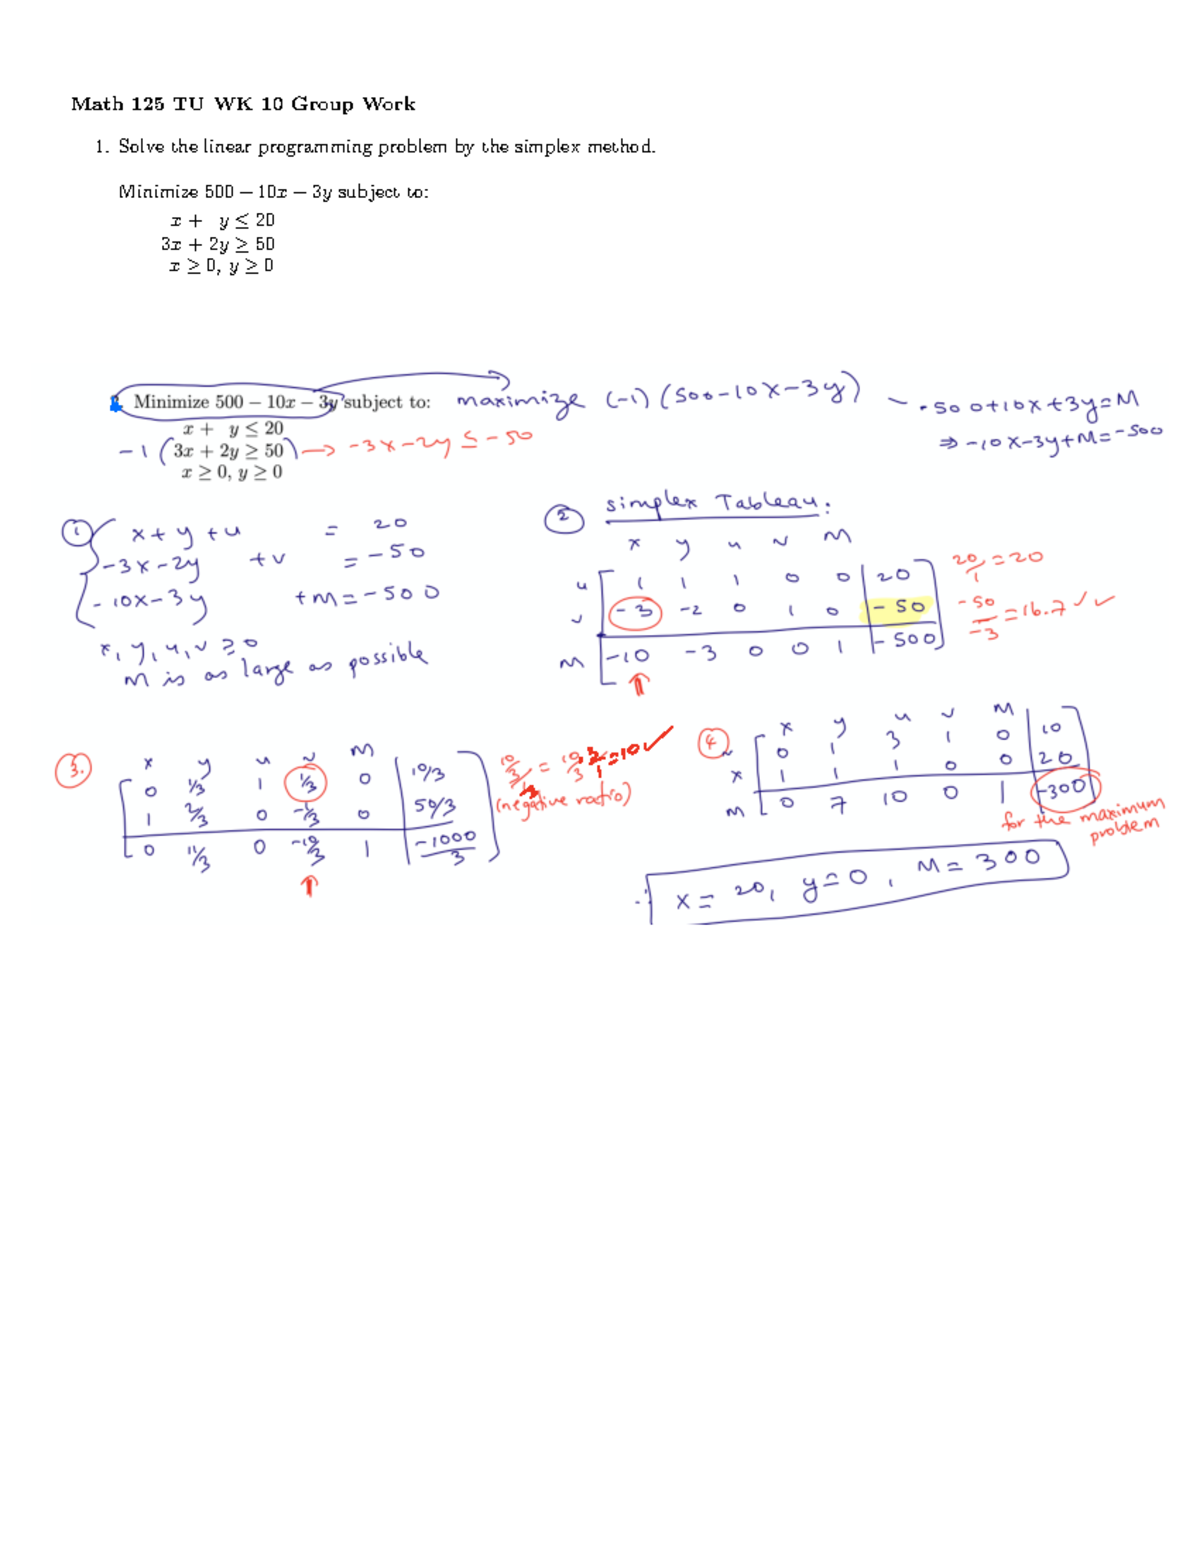 Math 125 TU WK 10 Group Work
1. Solve the linear programming problem by the simplex method.
Minimize 500 − 10x − 3y subject to:
x + y ≤ 20
3x + 2y ≥ 50
x ≥ 0, y ≥ 0
Minimize 500 − 10x − 3y subject to: maximize (-1)(500-10x-3y)
-500+10x+3y=M
⇒ -10x-3y+M=-500
x + y ≤ 20
-1 (3x + 2y ≥ 50) → -3x-2y ≤ -50
x ≥ 0, y ≥ 0
① x+y+u = 20
-3x-2y +v = -50
-10x-3y +M=-500
x,y,u,v ≥0
M is as large as possible
② simplex Tableau:
x y u v M
u 1 1 1 0 0 20 20/1 = 20
v -3 -2 0 1 0 -50 -50/-3 = 16.7 ✓✓
M -10 -3 0 0 1 -500
3. x y u v M
0 1/3 1 1/3 0 10/3
1 2/3 0 -1/3 0 50/3 (negative ratio)
0 11/3 0 -10/3 1 -1000/3
④ x y u v M
v 0 1 3 1 0 10
x 1 1 1 0 0 20
M 0 7 10 0 1 -300
for the maximum problem
∴ x = 20, y=0, M=300